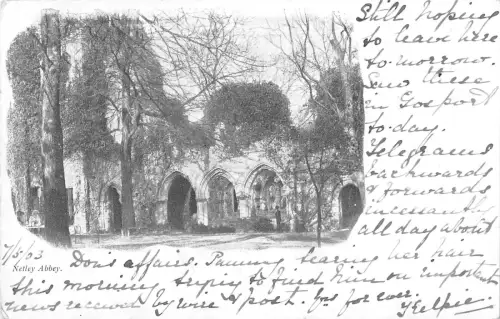 Still hoping
to leave here
to-morrow.
these
in Gosport
to-day.
Telegrams
backwards
& forwards
incessantly
all day about
7/5/03
Netley Abbey.
Don's affairs. tearing her hair
this morning trying to find him on important
news received by wire & post. Yrs for ever.